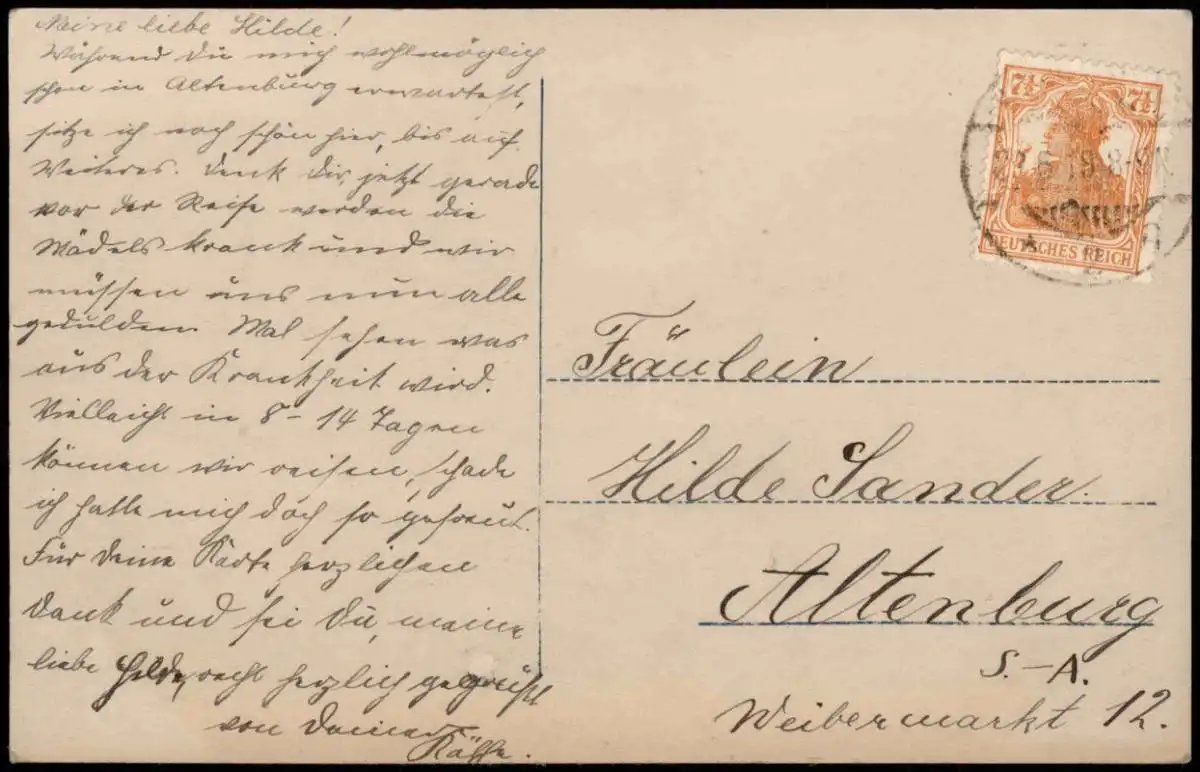 Meine liebe Hilde!
Während du mich wohlmöglich
schon in Altenburg erwartest,
sitze ich noch schön hier, bis auf
Weiteres. Denk dir, jetzt gerade
vor der Reise werden die
Mädels krank und wir
müssen uns nun alle
gedulden. Mal sehen was
aus der Krankheit wird.
Vielleicht in 8 - 14 Tagen
können wir reisen, schade
ich hatte mich doch so gefreut.
Für deine Karte herzlichen
Dank und sei du, meine
liebe Hilde, recht herzlich gegrüßt
von Deiner
Käthe.
7½ 7½
DEUTSCHES REICH
19.8-9N
Fräulein
Hilde Sander
Altenburg
S.-A.
Weibermarkt 12.